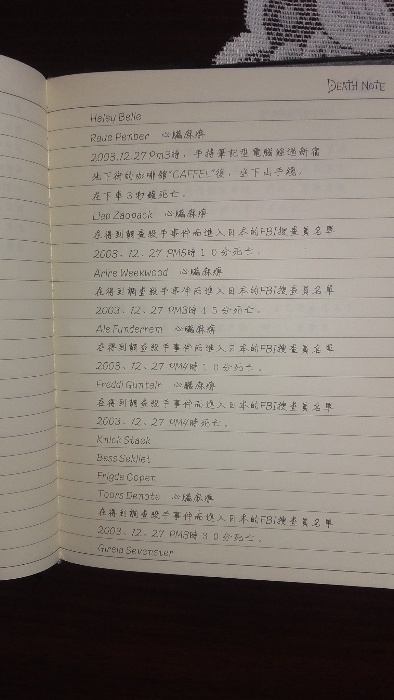 DEATH NOTE
Haley Belle
Raye Penber 心臟麻痺
2003.12.27 Pm3時,手持筆記型電腦經過新宿
地下街的咖啡館"CAFFEL"後,坐下山手線,
在下車3秒鐘死亡.
Lian Zapack 心臟麻痺
在得到調查殺手事件而進入日本的FBI搜查員名單
2003.12.27 PM3時10分死亡.
Arire Weekwood 心臟麻痺
在得到調查殺手事件而進入日本的FBI搜查員名單
2003.12.27 PM3時45分死亡.
Ale Funderrem 心臟麻痺
在得到調查殺手事件而進入日本的FBI搜查員名單
2003.12.27 PM4時10分死亡.
Freddi Guntair 心臟麻痺
在得到調查殺手事件而進入日本的FBI搜查員名單
2003.12.27 PM4時死亡.
Knick Staek
Bess Sekllet
Frigde Copet
Toors Denote 心臟麻痺
在得到調查殺手事件而進入日本的FBI搜查員名單
2003.12.27 PM3時30分死亡.
Girela Sevenster